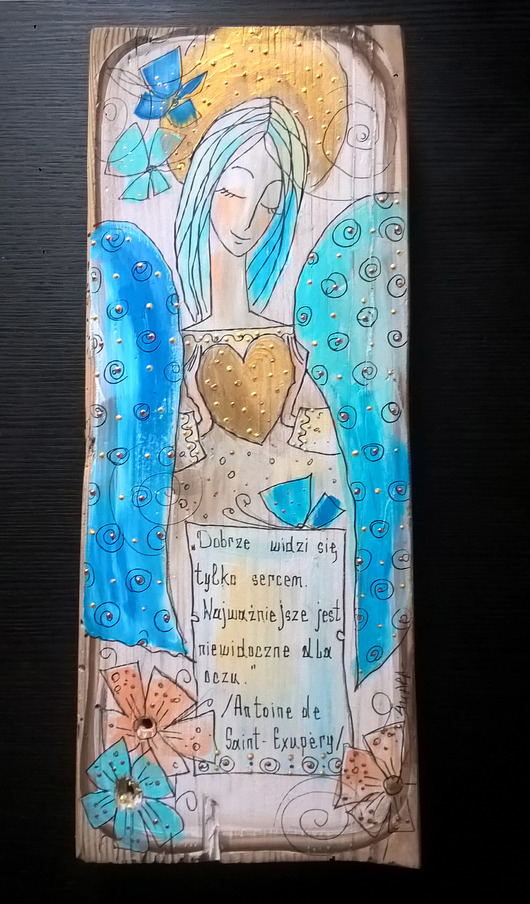 „Dobrze widzi się
tylko sercem.
Najważniejsze jest
niewidoczne dla
oczu."
/Antoine de
Saint-Exupèry/